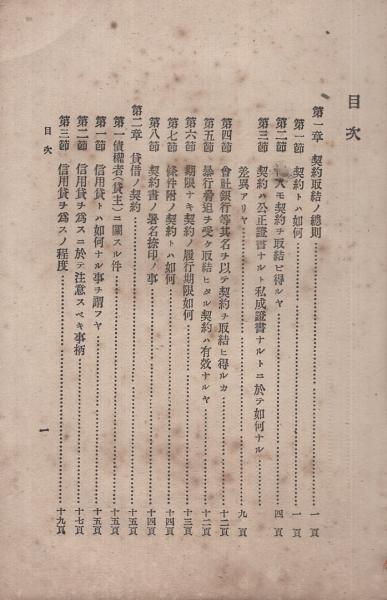 目次
第一章 契約取結ノ總則 一頁
第一節 契約トハ如何 一頁
第二節 モ契約チ取結ヒ得ルヤ 四頁
第三節 契約ハ公正證書ナルト私成證書ナルトニ於テ如何ナル
差異アリヤ 九頁
第四節 會社銀行等其名チ以テ契約チ取結ヒ得ルカ 十二頁
第五節 暴行脅迫チ受ケ取結ヒタル契約ハ有效ナルヤ 十二頁
第六節 期限ナキ契約ノ履行期限如何 十三頁
第七節 條件附ノ契約トハ如何 十四頁
第八節 契約書ノ署名捺印ノ事 十四頁
第二章 貸借ノ契約 十五頁
第一 債權者(貸主)ニ關スル件 十五頁
第一節 信用貸トハ如何ナル事チ謂フヤ 十五頁
第二節 信用貸チ爲スニ於テ注意スベキ事柄 十七頁
第三節 信用貸チ爲スノ程度 十九頁
目次
一